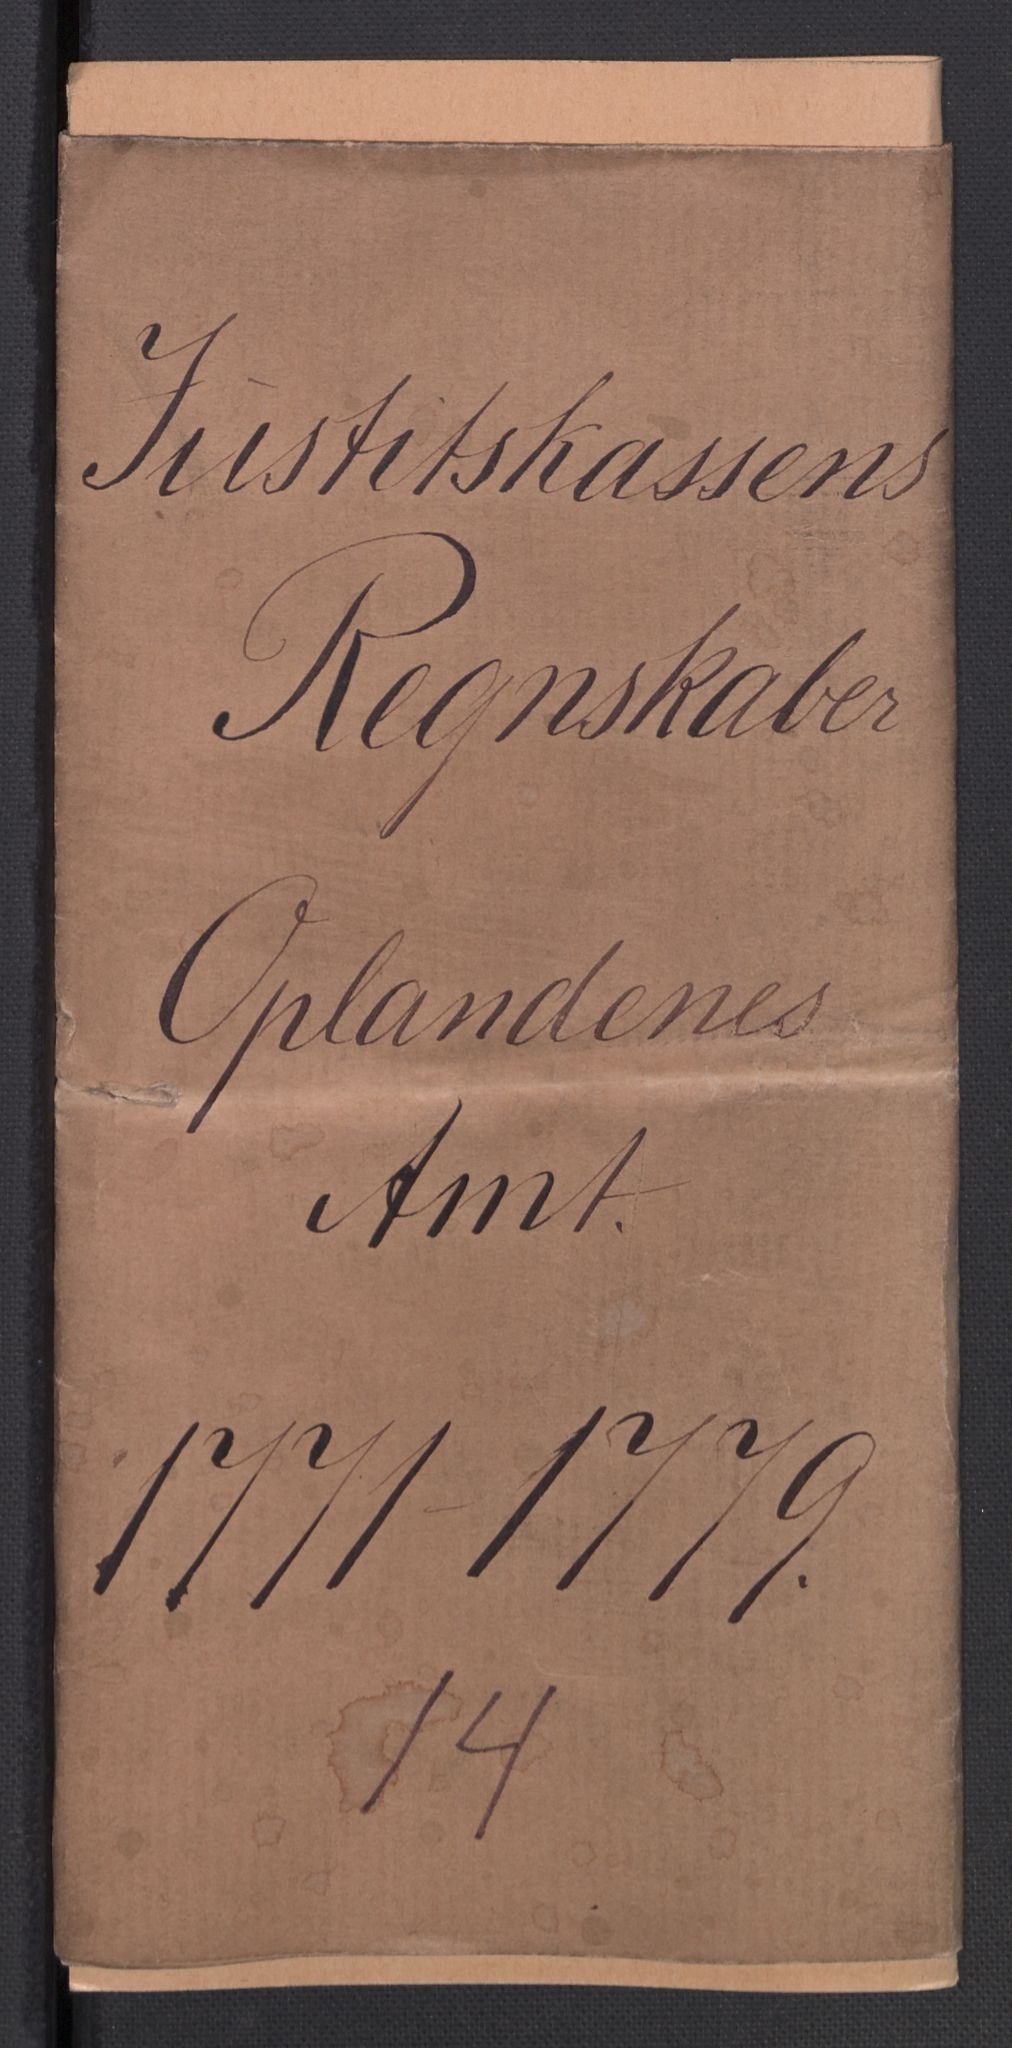 Justitskassens
Regnskaber
Oplandenes
Amt.
1771-1779.
14